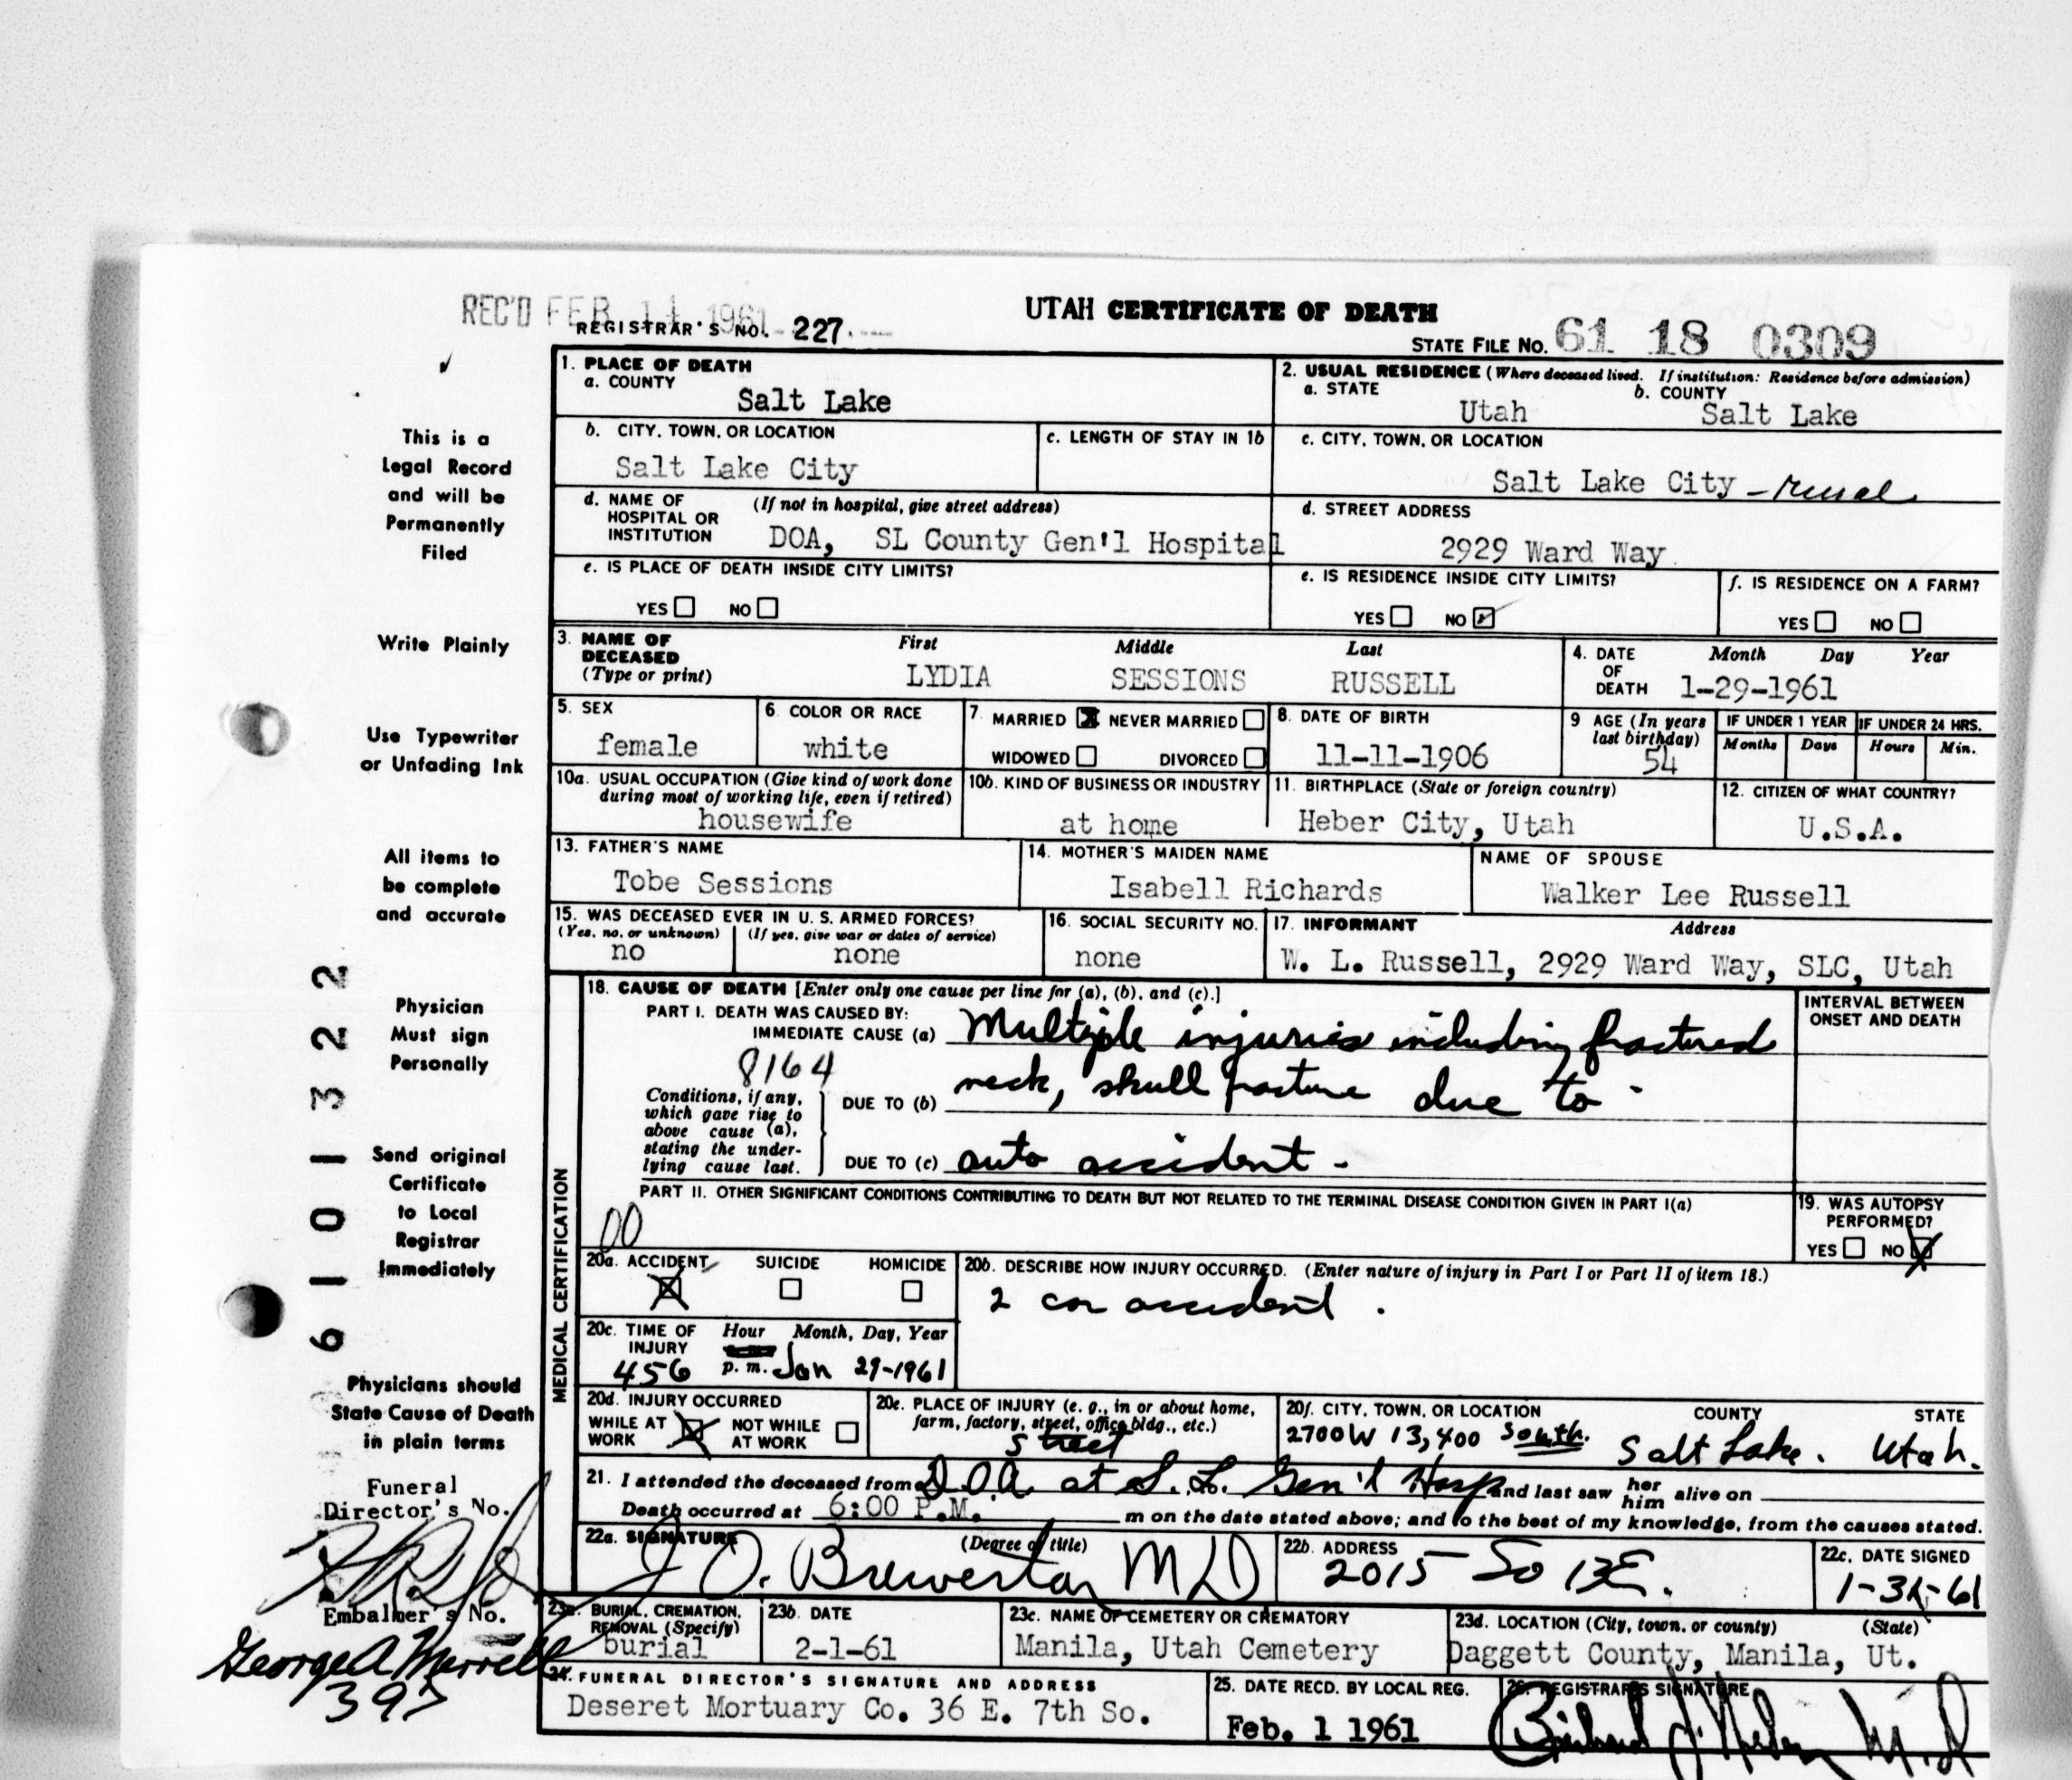 REC'D FEB 14 1961
REGISTRAR'S NO. 227
UTAH CERTIFICATE OF DEATH
STATE FILE No. 61 18 0309
This is a
Legal Record
and will be
Permanently
Filed
Write Plainly
Use Typewriter
or Unfading Ink
All items to
be complete
and accurate
Physician
Must sign
Personally
Send original
Certificate
to Local
Registrar
Immediately
Physicians should
State Cause of Death
in plain terms
Funeral
Director's No.
Embalmer's No.
George A Merrell
393
6 1 0 1 1 3 2 2
1. PLACE OF DEATH
a. COUNTY
Salt Lake
b. CITY, TOWN, OR LOCATION
Salt Lake City
c. LENGTH OF STAY IN 1b
d. NAME OF HOSPITAL OR INSTITUTION (If not in hospital, give street address)
DOA, SL County Gen'l Hospital
e. IS PLACE OF DEATH INSIDE CITY LIMITS?
YES NO
2. USUAL RESIDENCE (Where deceased lived. If institution: Residence before admission)
a. STATE b. COUNTY
Utah Salt Lake
c. CITY, TOWN, OR LOCATION
Salt Lake City - rural
d. STREET ADDRESS
2929 Ward Way
e. IS RESIDENCE INSIDE CITY LIMITS?
YES NO
f. IS RESIDENCE ON A FARM?
YES NO
3. NAME OF DECEASED (Type or print)
First Middle Last
LYDIA SESSIONS RUSSELL
4. DATE OF DEATH Month Day Year
1-29-1961
5. SEX
female
6. COLOR OR RACE
white
7. MARRIED NEVER MARRIED
WIDOWED DIVORCED
8. DATE OF BIRTH
11-11-1906
9 AGE (In years last birthday)
54
IF UNDER 1 YEAR IF UNDER 24 HRS.
Months Days Hours Min.
10a. USUAL OCCUPATION (Give kind of work done
during most of working life, even if retired)
housewife
10b. KIND OF BUSINESS OR INDUSTRY
at home
11. BIRTHPLACE (State or foreign country)
Heber City, Utah
12. CITIZEN OF WHAT COUNTRY?
U.S.A.
13. FATHER'S NAME
Tobe Sessions
14. MOTHER'S MAIDEN NAME
Isabell Richards
NAME OF SPOUSE
Walker Lee Russell
15. WAS DECEASED EVER IN U. S. ARMED FORCES?
(Yes, no, or unknown) (If yes, give war or dates of service)
no none
16. SOCIAL SECURITY NO.
none
17. INFORMANT Address
W. L. Russell, 2929 Ward Way, SLC, Utah
MEDICAL CERTIFICATION
18. CAUSE OF DEATH [Enter only one cause per line for (a), (b), and (c).]
PART I. DEATH WAS CAUSED BY:
IMMEDIATE CAUSE (a) Multiple injuries including fractured
8164
Conditions, if any,
which gave rise to
above cause (a),
stating the under-
lying cause last.
DUE TO (b) neck, skull fracture due to
DUE TO (c) auto accident.
INTERVAL BETWEEN
ONSET AND DEATH
PART II. OTHER SIGNIFICANT CONDITIONS CONTRIBUTING TO DEATH BUT NOT RELATED TO THE TERMINAL DISEASE CONDITION GIVEN IN PART I(a)
00
19. WAS AUTOPSY
PERFORMED?
YES NO
20a. ACCIDENT SUICIDE HOMICIDE
20b. DESCRIBE HOW INJURY OCCURRED. (Enter nature of injury in Part I or Part II of item 18.)
2 car accident.
20c. TIME OF INJURY Hour Month, Day, Year
456 p. m. Jan 29-1961
20d. INJURY OCCURRED
WHILE AT WORK NOT WHILE AT WORK
20e. PLACE OF INJURY (e. g., in or about home,
farm, factory, street, office bldg., etc.)
street
20f. CITY, TOWN, OR LOCATION COUNTY STATE
2700 W 13,400 South. Salt Lake. Utah.
21. I attended the deceased from D.O.A. at S. L. Gen'l Hosp and last saw her him alive on
Death occurred at 6:00 P.M. m on the date stated above; and to the best of my knowledge, from the causes stated.
22a. SIGNATURE (Degree or title)
J O. Brewerton MD
22b. ADDRESS
2015 So 13 E.
22c. DATE SIGNED
23a. BURIAL, CREMATION, REMOVAL (Specify)
burial
23b. DATE
2-1-61
23c. NAME OF CEMETERY OR CREMATORY
Manila, Utah Cemetery
23d. LOCATION (City, town, or county) (State)
Daggett County, Manila, Ut.
24. FUNERAL DIRECTOR'S SIGNATURE AND ADDRESS
Deseret Mortuary Co. 36 E. 7th So.
25. DATE RECD. BY LOCAL REG.
Feb. 1 1961
26. REGISTRAR'S SIGNATURE